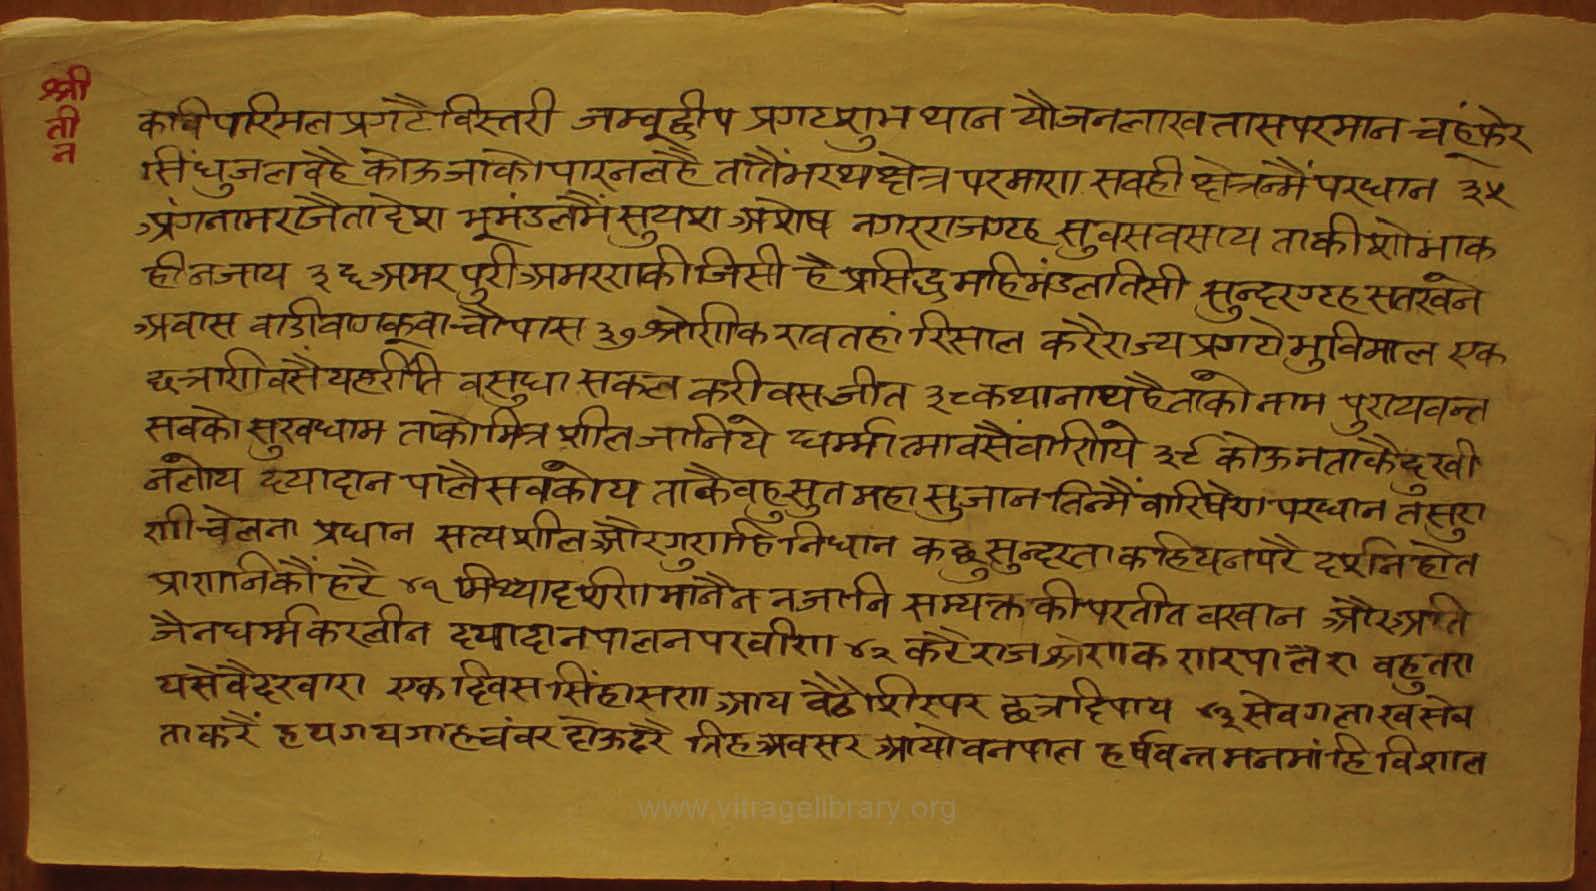 श्री
ती
न
कवि परिमल प्रगटै विस्तरी जम्बूद्वीप प्रगट शुभ थान यौजन लाख तास परमान चहुं फेर
सिंधु जल वहै कोऊ जाको पार न लहै तातैं भरथ क्षेत्र परमाण सवही क्षेत्रन्मैं परधान ३५
अंग नाम राजै ता देश भूमंडलमैं सुयश अशेष नगर राजग्रह सुवस वसाय ताकी शोभा क
ही न जाय ३६ अमर पुरी अमरण की जिसी है प्रसिद्ध महिमंडल तिसी सुन्दर ग्रह सतखंने
अवास वाडी वाण कूवा चौपास ३७ श्रेणीक राव तहां रिसाल करै राज्य प्रगटो भुविमाल एक
छत्राणी वसै यह रीति वसुधा सकल करी वस जीत ३८ कथा नाथ है ताको नाम पुण्यवन्त
सवको सुखधाम ताको मित्र शील जानिये धर्म्मात्मा वसैं वाणिये ३९ कोऊ न ताकै दुखी
न लोय दयादान पालै सव कोय ताकै वहु सुत महा सुजान तिन्मैं वारिषेण परधान त सुरा
णी चेलना प्रधान सत्य शील और गुणहि निधान कछु सुन्दरता कहिय न परै दर्शन होत
प्राणनिकौं हरै ४१ मिथ्यादर्शण मानै न न जानि सम्यक्त की परतीत वखान और अति
जैनधर्म्म कर लीन दयादान पालन परवीण ४२ करै राज श्रेणक णरपाल रा वहुतरा
य सेवै दरवारा एक दिवस सिंहासण आय वैठौ शिर पर छत्र दिपाय ४३ सेवग लाख सेव
ता करैं हय गय गाह चंवर दोऊ ढरै तिह अवसर आयो वनपाल हर्षवन्त मन मांहि विशाल
www.vitragelibrary.org